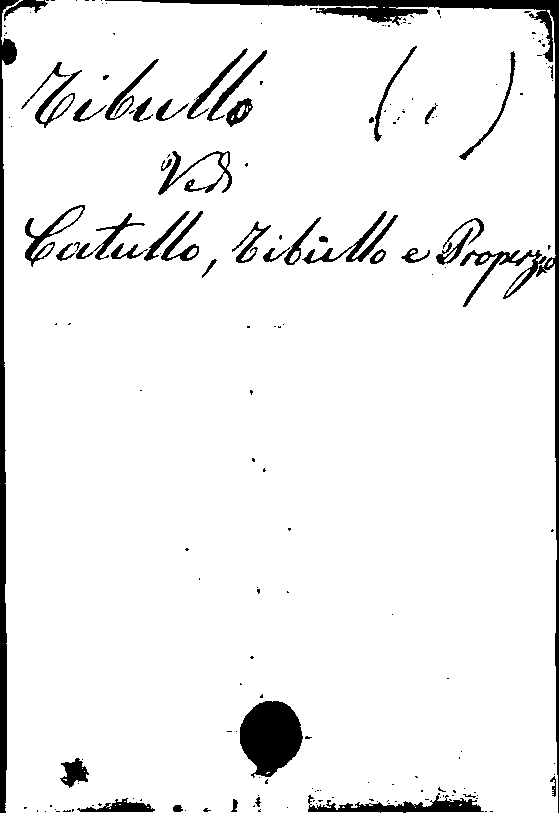 Tibullo ( )
Vedi
Catullo, Tibullo e Properzio